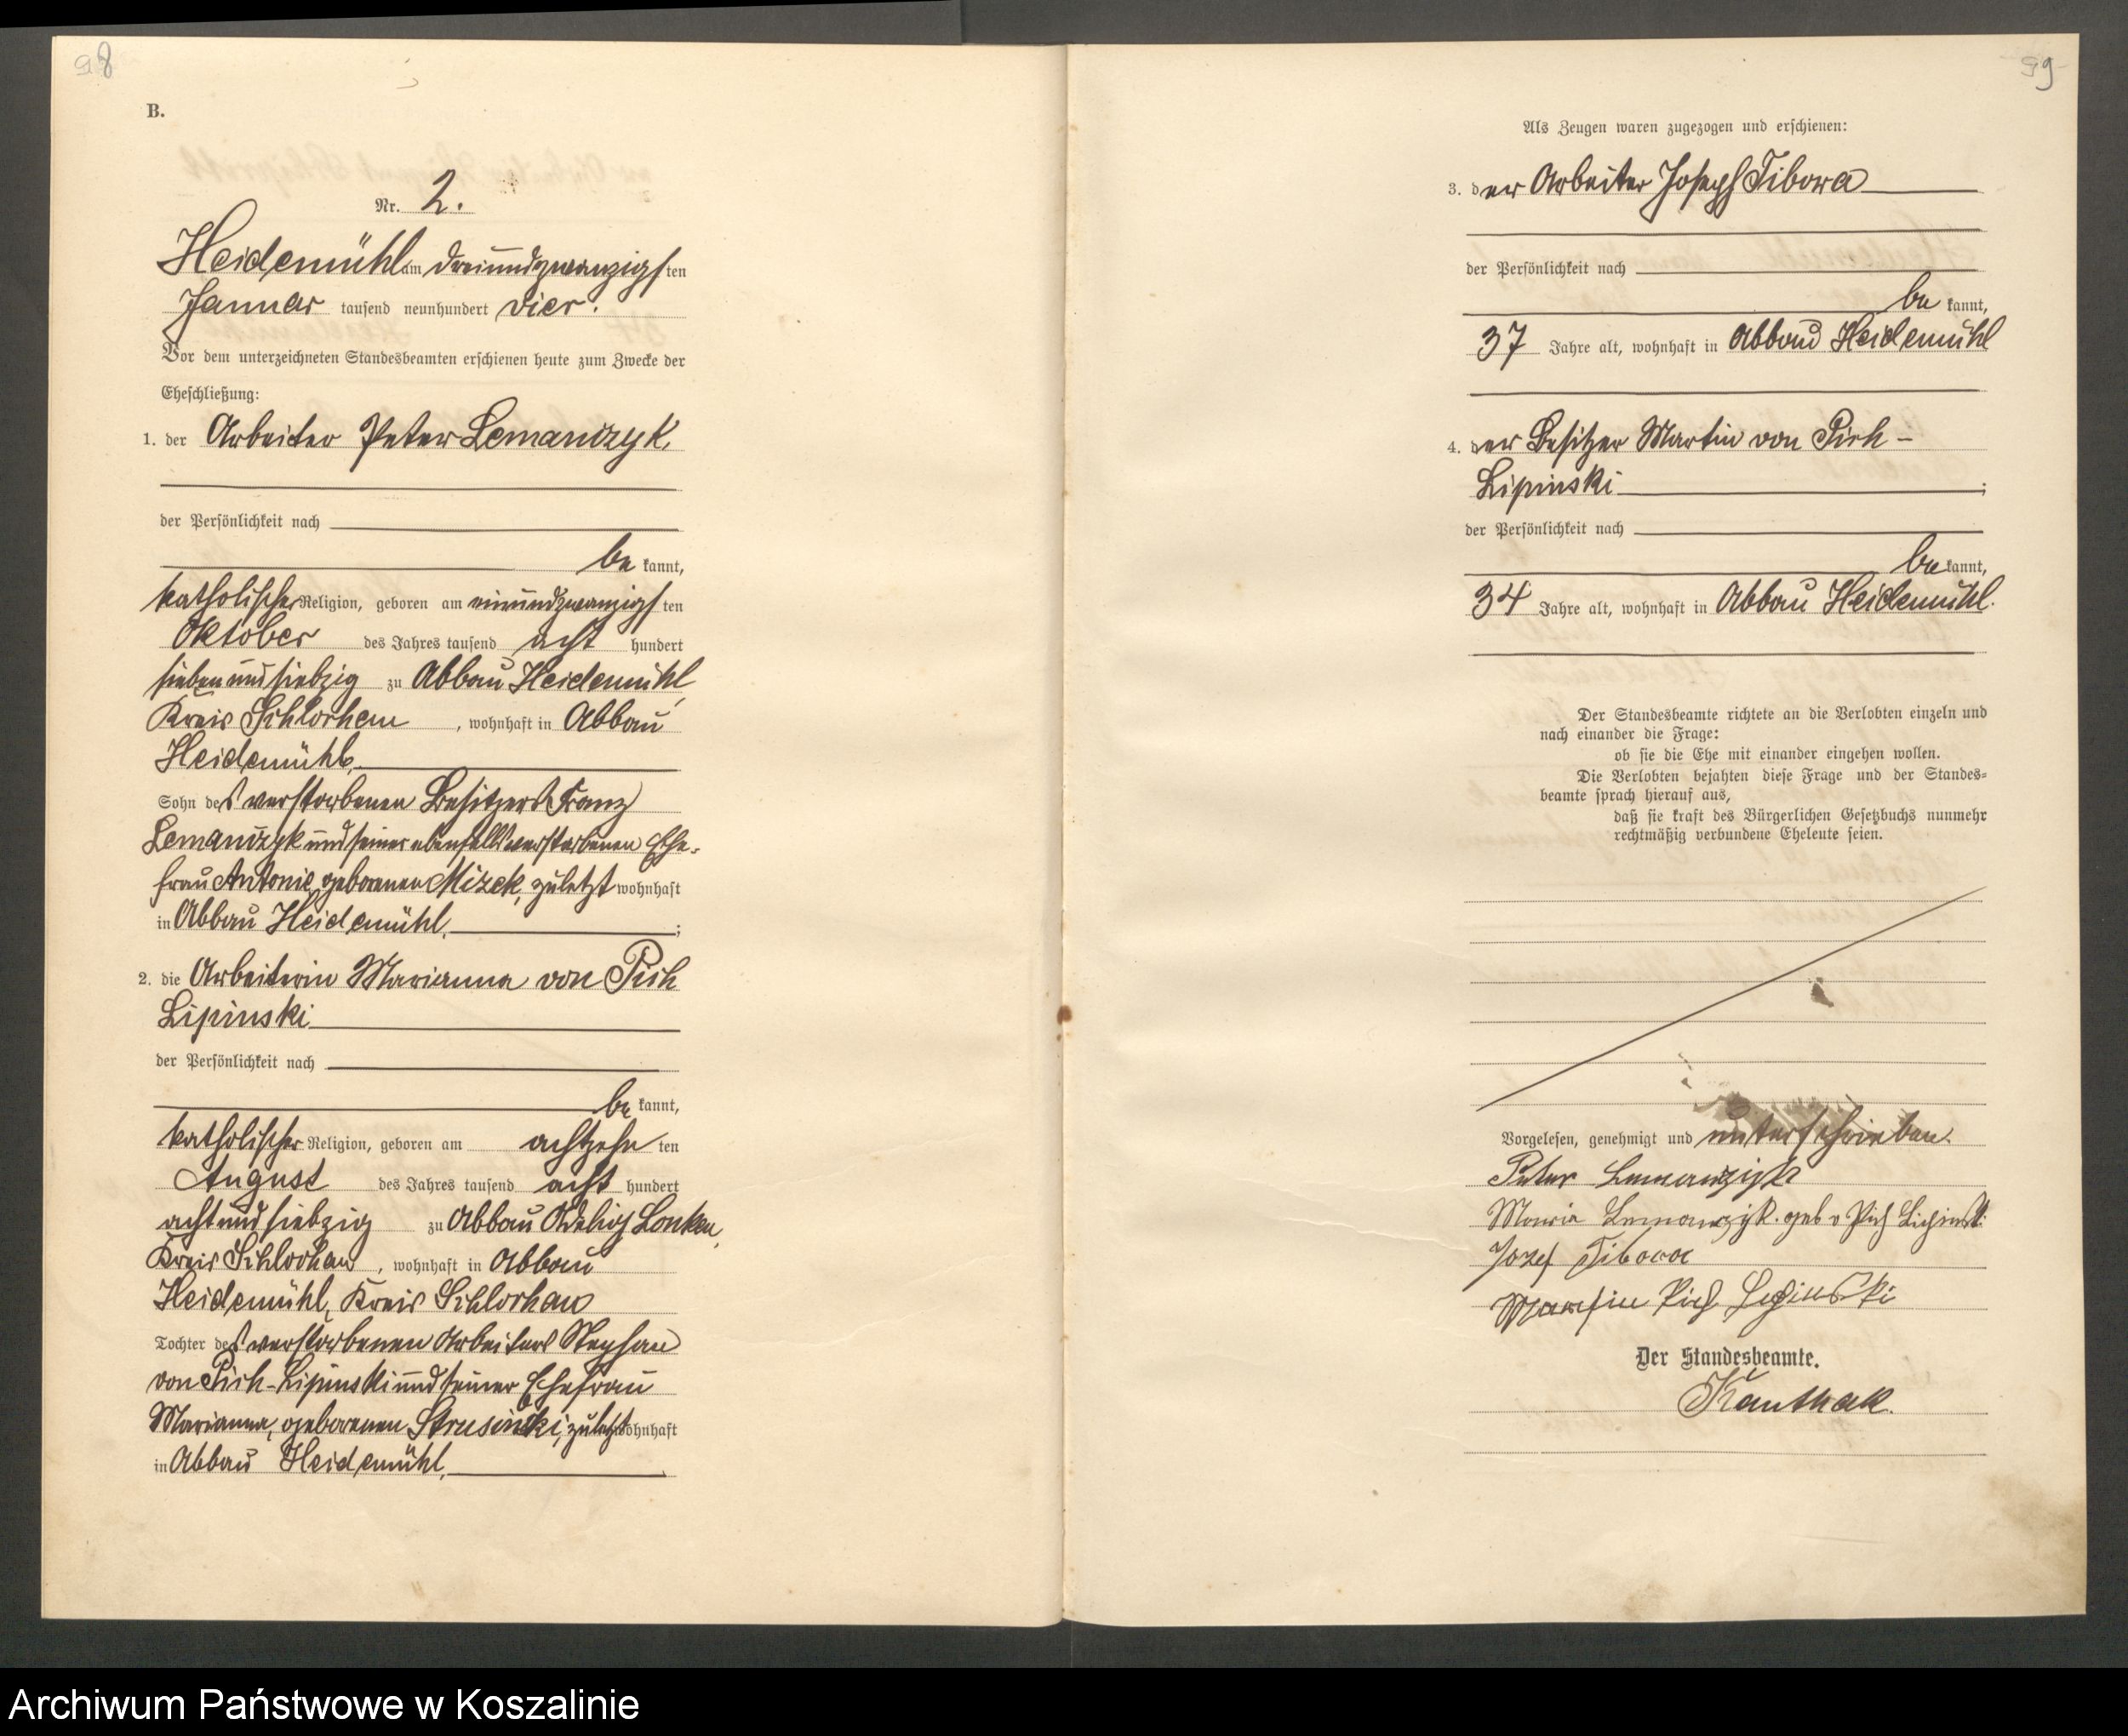 98
B.
Nr. 2.
Heidemühl am dreiundzwanzigsten
Januar tausend neunhundert vier.
Vor dem unterzeichneten Standesbeamten erschienen heute zum Zwecke der
Eheschließung:
1. der Arbeiter Peter Lemanczyk,
der Persönlichkeit nach
bekannt,
katholischer Religion, geboren am einundzwanzigsten
Oktober des Jahres tausend acht hundert
siebenundsiebzig zu Abbau Heidemühl,
Kreis Schlochau, wohnhaft in Abbau
Heidemühl,
Sohn des verstorbenen Besitzers Franz
Lemanczyk und seiner ebenfalls verstorbenen Ehe-
frau Antonie, geborenen Mizek, zuletzt wohnhaft
in Abbau Heidemühl,;
2. die Arbeiterin Marianna von Pich
Lipinski
der Persönlichkeit nach
bekannt,
katholischer Religion, geboren am achtzehnten
August des Jahres tausend acht hundert
achtundsiebzig zu Abbau Adelig Lonken,
Kreis Schlochau, wohnhaft in Abbau
Heidemühl, Kreis Schlochau
Tochter des verstorbenen Arbeiters Stephan
von Pich-Lipinski und seiner Ehefrau
Marianna, geborenen Strusinski, zuletzt wohnhaft
in Abbau Heidemühl,
99
Als Zeugen waren zugezogen und erschienen:
3. der Arbeiter Joseph Tibora
der Persönlichkeit nach
bekannt,
37 Jahre alt, wohnhaft in Abbau Heidemühl
4. der Besitzer Martin von Pich-
Lipinski;
der Persönlichkeit nach
bekannt,
34 Jahre alt, wohnhaft in Abbau Heidemühl.
Der Standesbeamte richtete an die Verlobten einzeln und
nach einander die Frage:
ob sie die Ehe mit einander eingehen wollen.
Die Verlobten bejahten diese Frage und der Standes=
beamte sprach hierauf aus,
daß sie kraft des Bürgerlichen Gesetzbuchs nunmehr
rechtmäßig verbundene Eheleute seien.
Vorgelesen, genehmigt und unterschrieben.
Peter Lemanczyk
Maria Lemanczyk. geb v Pich Lipinski
Jozef Tibora
Martin Pich Lipinski
Der Standesbeamte.
Kanthak.
Archiwum Państwowe w Koszalinie